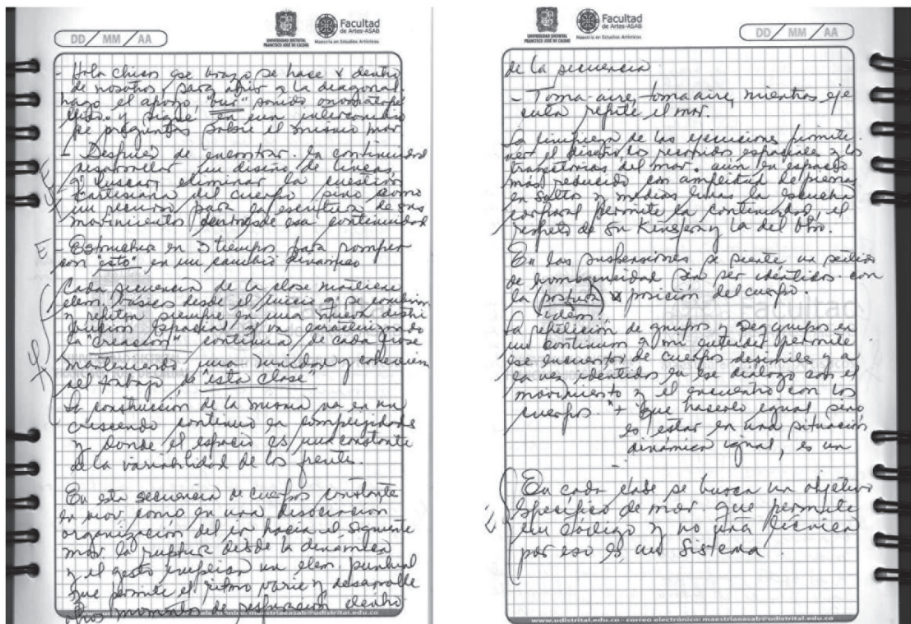 DD / MM / AA
UNIVERSIDAD DISTRITAL
FRANCISCO JOSÉ DE CALDAS
Facultad
de Artes-ASAB
Maestría en Estudios Artísticos
- Hola chicos ese brazo se hace x dentro
de nosotros, para abrir y la diagonal
hago el apoyo "bur" sonido
y sigue en una
de preguntas sobre el mismo mov
- Después de encontrar la continuidad
desarrollar un diseño de líneas,
y buscar eliminar la cuestión
cartesiana del cuerpo sino como
un recurso para la escritura de sus
movimientos dentro de esa continuidad
E
- Estructura en 3 tiempos para romper
con "esto" en un cambio dinámico
Cada secuencia de la clase mantiene
elem. básicos desde el inicio y se combinan
y repiten siempre en una nueva distri
bución espacial y va
la "creación" continua de cada frase
manteniendo una unidad y cohesión
del trabajo de "esta clase"
La construcción de la misma va en un
crescendo continuo en complejidades
y donde el espacio es una constante
de la variabilidad de los frente.
En esta secuencia de cuerpos constante
en mov como en una disociación
organización del ir hacia el siguiente
mov la ruptura desde la dinámica
y el gesto un elem. puntual
que permite el ritmo varíe y desarrolle
otros momentos de respiración dentro
UNIVERSIDAD DISTRITAL
FRANCISCO JOSÉ DE CALDAS
Facultad
de Artes-ASAB
Maestría en Estudios Artísticos
DD / MM / AA
de la secuencia
- Toma aire, toma aire, mientras eje
cuta repite el mov.
La limpieza de las ejecuciones permite
ver el diseño los recorridos espaciales y la
trayectorias del mov. aún en espacio
más reducido con amplitud de piernas
en saltos y varias líneas la escucha
corporal permite la continuidad, el
respeto de su Kinesfera y la del otro.
En las suspensiones se siente un
de homogeneidad sin ser idénticos con
la (postura) x posición del cuerpo.
idem
La repetición de grupos y seg grupos en
un continuum a mi entender permite
ese encuentro de cuerpos disímiles y a
la vez idénticos en ese diálogo con el
movimiento y el encuentro con los
cuerpos "+ que hacerlo igual sino
es estar en una situación
dinámica igual, es un
E
En cada clase se busca un objetivo
específico de mov. que permite
un código y no una técnica
por eso es un Sistema.
www.udistrital.edu.co - correo electrónico: maestriaeasab@udistrital.edu.co